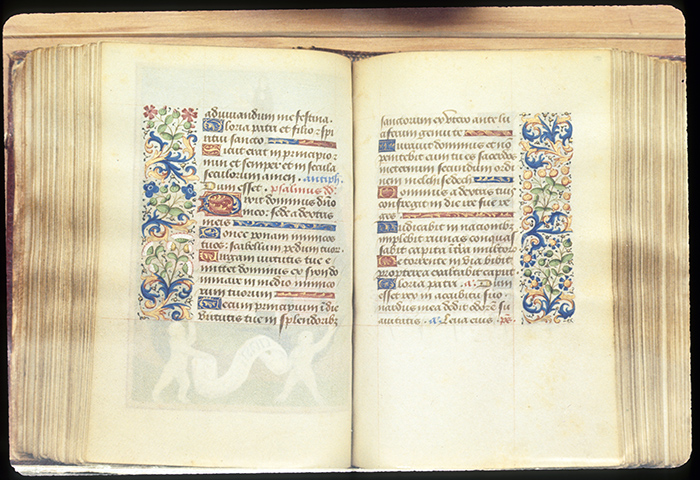 adiuuandum me festina.
Gloria patri et filio: spi
ritui sancto
Sicut erat in principio:
nunc et semper et in secula
seculorum amen. antiph.
Dum esset. psalmus dd
Dixit dominus dno
meo: sede a dextris
meis
Donec ponam inimicos
tuos: scabellum pedum tuor
Uirgam uirtutis tue e
mittet dominus ex syon do
minare in medio inimico
rum tuorum
Tecum principium i die
uirtutis tue in splendoribz
sanctorum ex utero ante lu
ciferum genui te
Iurauit dominus et no
penitebit eum tu es sacerdos
in eternum secundum ordi
nem melchisedech
Dominus a dextris tuis
confregit in die ire sue re
ges
Iudicabit in nationibz
implebit ruinas conquas
sabit capita i terra multoru
De torrente in uia bibet
propterea exaltabit caput
Gloria patri. a. Dum
esset rex in accubitu suo
nardus mea dedit odore su
auitatis. a. Leua eius. ps.